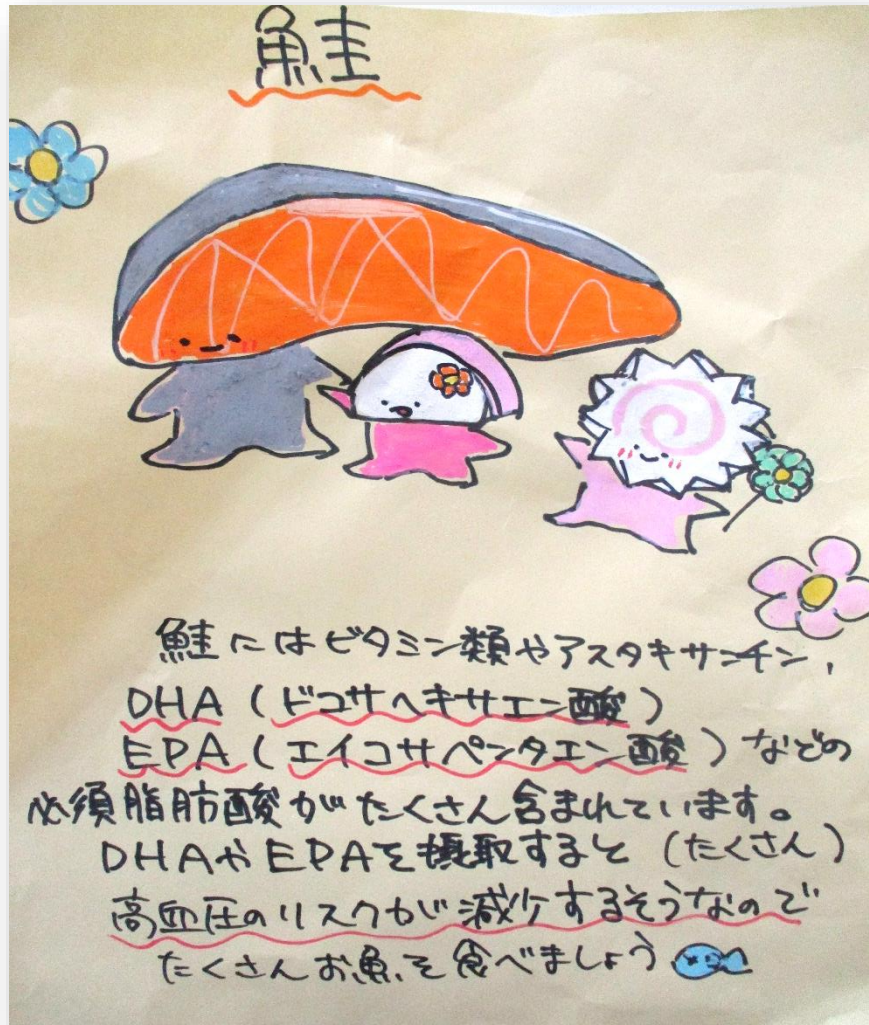 鮭
鮭にはビタミン類やアスタキサンチン,
DHA(ドコサヘキサエン酸)
EPA(エイコサペンタエン酸)などの
必須脂肪酸がたくさん含まれています。
DHAやEPAを摂取すると(たくさん)
高血圧のリスクが減少するそうなので
たくさんお魚を食べましょう